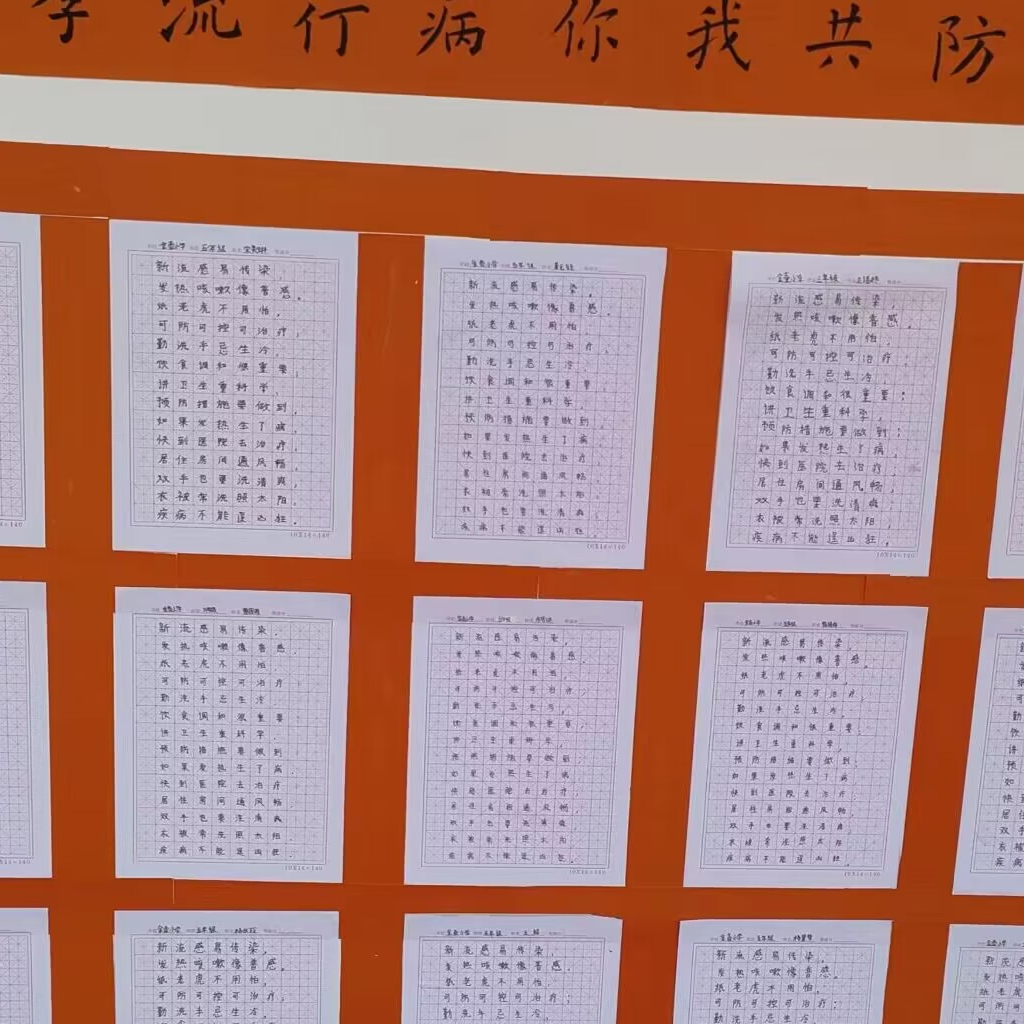 季流行病你我共防
金壶小学 五年级
新流感易传染，
发热咳嗽像普感。
纸老虎不用怕，
可防可控可治疗，
勤洗手忌生冷，
饮食调和很重要，
讲卫生重科学，
预防措施要做到，
如果发热生了病，
快到医院去治疗，
居住房间通风畅，
双手也要洗清爽，
衣被常洗照太阳，
疾病不能逞凶狂。
10X14=140
金壶小学 五年级
新流感易传染，
发热咳嗽像普感。
纸老虎不用怕
可防可控可治疗，
勤洗手忌生冷，
饮食调和很重要，
讲卫生重科学，
预防措施要做到，
如果发热生了病，
快到医院去治疗，
居住房间通风畅，
衣被常洗照太阳
双手也要洗清爽，
疾病不能逞凶狂。
10X14=140
金壶小学 三年级
新流感易传染，
发热咳嗽像普感，
纸老虎不用怕，
可防可控可治疗
勤洗手忌生冷，
饮食调和很重要；
讲卫生重科学，
预防措施要做到；
如果发热生了病，
快到医院去治疗，
居住房间通风畅，
双手也要洗清爽
衣被常洗照太阳，
疾病不能逞凶狂。
10X14=140
金壶小学
新流感易传染，
发热咳嗽像普感，
纸老虎不用怕，
可防可控可治疗
勤洗手忌生冷
饮食调和很重要
讲卫生重科学，
预防措施要做到
如果发热生了病，
快到医院去治疗
居住房间通风畅
双手也要洗清爽
衣被常洗照太阳
疾病不能逞凶狂。
10X14=140
新流感易传染，
发热咳嗽像普感
纸老虎不用怕，
可防可控可治疗，
勤洗手忌生冷，
饮食调和很重要，
讲卫生重科学，
预防措施要做到
如果发热生了病
快到医院去治疗，
居住房间通风畅，
双手也要洗清爽，
衣被常洗照太阳
疾病不能逞凶狂。
10X14=140
金壶小学
新流感易传染，
发热咳嗽像普感，
纸老虎不用怕
可防可控可治疗，
勤洗手忌生冷，
饮食调和很重要，
讲卫生重科学，
预防措施要做到
如果发热生了病
快到医院去治疗，
居住房间通风畅，
双手也要洗清爽
衣被常洗照太阳
疾病不能逞凶狂。
10X14=140
金壶小学 五年级
新流感易传染，
发热咳嗽像普感。
纸老虎不用怕，
可防可控可治疗，
勤洗手忌生冷，
金壶小学 五年级
新流感易传染，
发热咳嗽像普感，
纸老虎不用怕，
可防可控可治疗；
勤洗手忌生冷，
金壶小学 五年级
新流感易传染，
发热咳嗽像普感。
纸老虎不用怕，
可防可控可治疗；
勤洗手忌生冷，